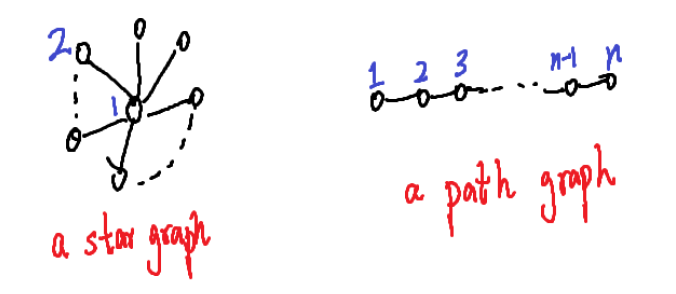 2
1
a star graph
1 2 3 n-1 n
a path graph